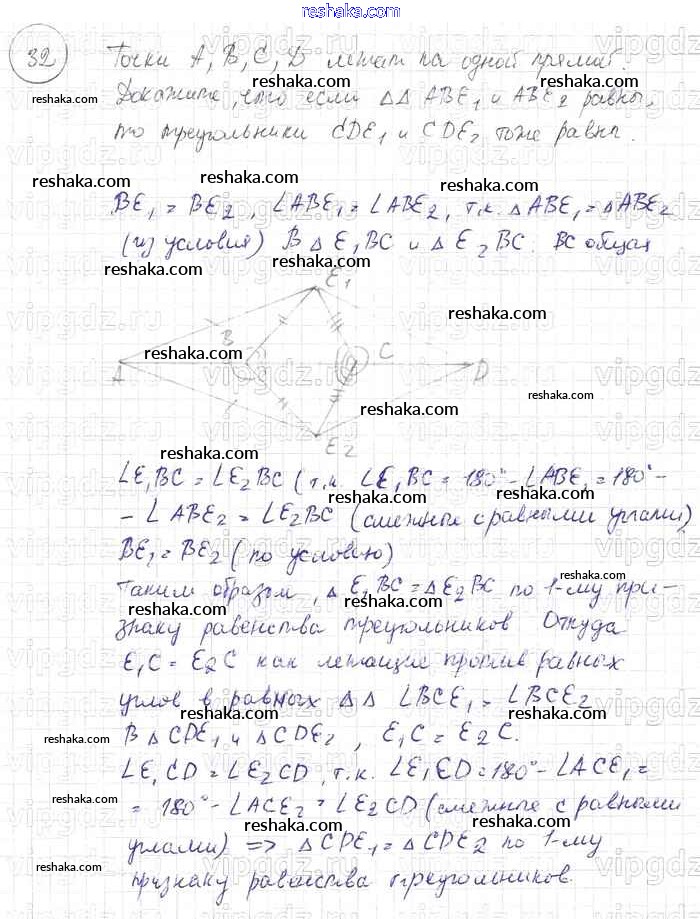 reshaka.com
32 Точки A, B, C, D лежат на одной прямой.
Докажите, что если ΔΔ ABE₁ и ABE₂ равны,
то треугольники CDE₁ и CDE₂ тоже равны.
BE₁ = BE₂, ∠ABE₁ = ∠ABE₂, т.к. ΔABE₁ = ΔABE₂
(из условия) В Δ E₁BC и Δ E₂BC. BC общая
E₁
B
C
A
D
E₂
∠E₁BC = ∠E₂BC (т.к. ∠E₁BC = 180° - ∠ABE₁ = 180° -
- ∠ABE₂ = ∠E₂BC (смежные с равными углами)
BE₁ = BE₂ (по условию)
Таким образом, Δ E₁BC = Δ E₂BC по 1-му при-
знаку равенства треугольников Откуда
E₁C = E₂C как лежащие против равных
углов в равных ΔΔ ∠BCE₁ = ∠BCE₂
В Δ CDE₁ и Δ CDE₂, E₁C = E₂C.
∠E₁CD = ∠E₂CD, т.к. ∠E₁CD = 180° - ∠ACE₁ =
= 180° - ∠ACE₂ = ∠E₂CD (смежные с равными
углами) => Δ CDE₁ = Δ CDE₂ по 1-му
признаку равенства треугольников.
reshaka.com
vipgdz.ru